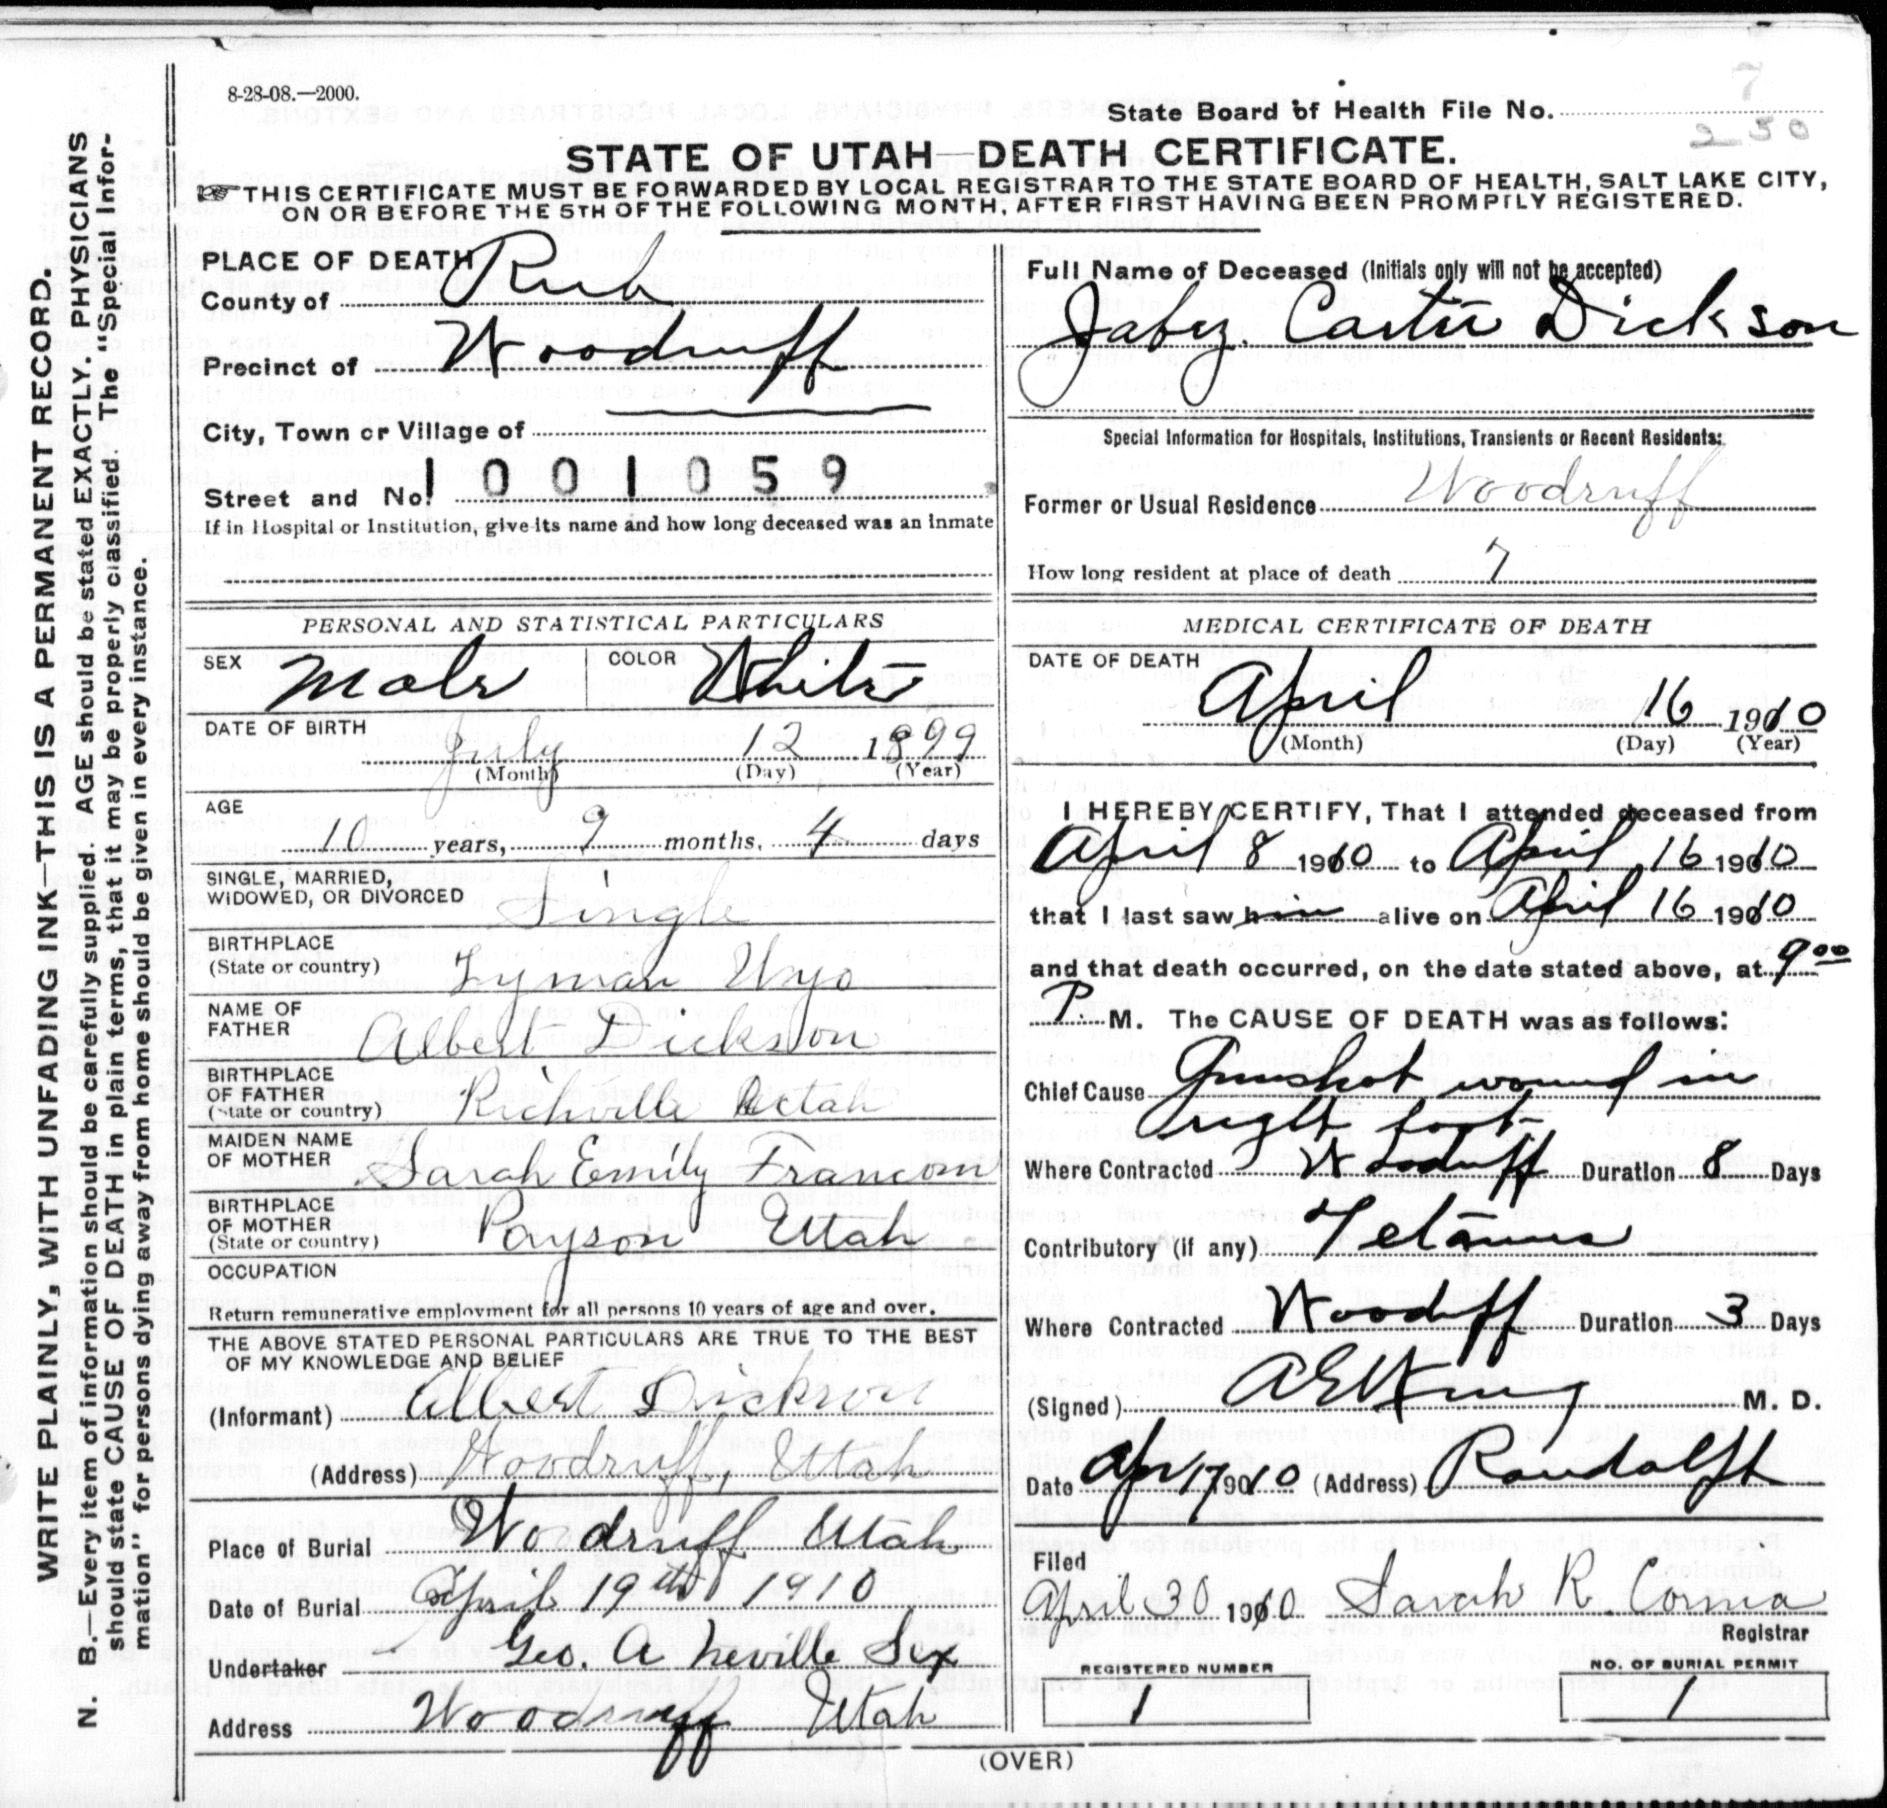 8-28-08.—2000.
7
State Board of Health File No.
250
STATE OF UTAH—DEATH CERTIFICATE.
THIS CERTIFICATE MUST BE FORWARDED BY LOCAL REGISTRAR TO THE STATE BOARD OF HEALTH, SALT LAKE CITY,
ON OR BEFORE THE 5TH OF THE FOLLOWING MONTH, AFTER FIRST HAVING BEEN PROMPTLY REGISTERED.
WRITE PLAINLY, WITH UNFADING INK—THIS IS A PERMANENT RECORD.
N. B.—Every item of information should be carefully supplied. AGE should be stated EXACTLY. PHYSICIANS
should state CAUSE OF DEATH in plain terms, that it may be properly classified. The "Special Infor-
mation" for persons dying away from home should be given in every instance.
PLACE OF DEATH
County of Rich
Precinct of Woodruff
City, Town or Village of
Street and No.
1001059
If in Hospital or Institution, give its name and how long deceased was an Inmate
PERSONAL AND STATISTICAL PARTICULARS
SEX Male COLOR White
DATE OF BIRTH July 12 1899
(Month) (Day) (Year)
AGE
10 years, 9 months, 4 days
SINGLE, MARRIED,
WIDOWED, OR DIVORCED Single
BIRTHPLACE
(State or country) Lyman Wyo
NAME OF
FATHER Albert Dickson
BIRTHPLACE
OF FATHER
(State or country) Richville Utah
MAIDEN NAME
OF MOTHER Sarah Emily Francom
BIRTHPLACE
OF MOTHER
(State or country) Payson Utah
OCCUPATION
Return remunerative employment for all persons 10 years of age and over.
THE ABOVE STATED PERSONAL PARTICULARS ARE TRUE TO THE BEST
OF MY KNOWLEDGE AND BELIEF
(Informant) Albert Dickson
(Address) Woodruff, Utah
Place of Burial Woodruff Utah
Date of Burial April 19th 1910
Undertaker Geo. A Neville Sex
Address Woodruff Utah
Full Name of Deceased (Initials only will not be accepted)
Jabez. Carter Dickson
Special Information for Hospitals, Institutions, Transients or Recent Residents:
Former or Usual Residence Woodruff
How long resident at place of death 7
MEDICAL CERTIFICATE OF DEATH
DATE OF DEATH
April 16 1910
(Month) (Day) (Year)
I HEREBY CERTIFY, That I attended deceased from
April 8 1910 to April 16 1910
that I last saw him alive on April 16 1910
and that death occurred, on the date stated above, at 9 00
P. M. The CAUSE OF DEATH was as follows:
Chief Cause Gunshot wound in
right foot
Where Contracted Woodruff Duration 8 Days
Contributory (if any) Tetanus
Where Contracted Woodruff Duration 3 Days
(Signed) M. D.
Date Apr 17 1910 (Address) Randolph
Filed
April 30 1910 Sarah R. Cornia
Registrar
REGISTERED NUMBER
1
NO. OF BURIAL PERMIT
1
(OVER)